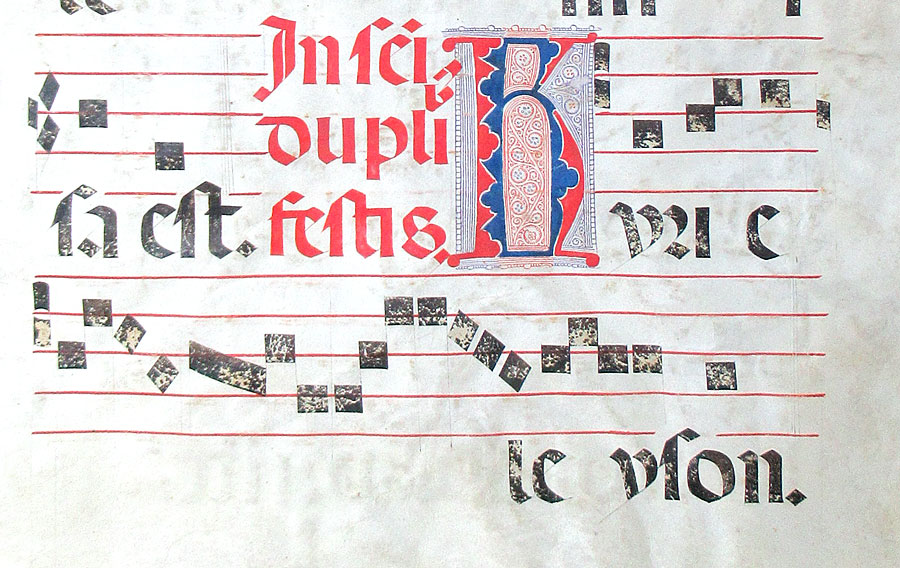 In sci
dupli
sa est. festis. K yri e
le yson.